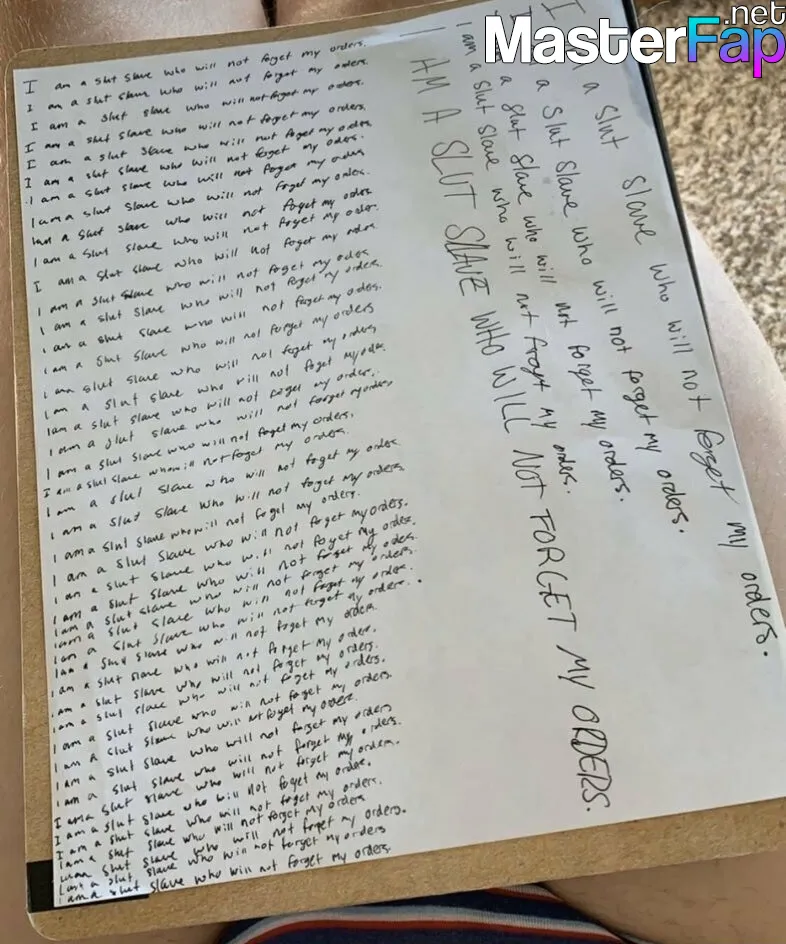 MasterFap
.net
I am a slut slave who will not forget my orders.
I am a slut slave who will not forget my orders.
I am a slut slave who will not forget my orders.
I am a slut slave who will not forget my orders.
I am a slut slave who will not forget my orders.
I am a slut slave who will not forget my orders.
I am a slut slave who will not forget my orders
I am a slut slave who will not forget my orders.
I am a slut slave who will not forget my orders.
I am a slut slave who will not forget my orders.
I am a slut slave who will not forget my orders.
I am a slut slave who will not forget my orders
I am a slut slave who will not forget my orders.
I am a slut slave who will not forget my orders.
I am a slut slave who will not forget my orders
I am slut slave who will not forget my orders
I am a slut slave who will not forget my orders.
I am a slut slave who will not forget my orders.
I am a slut slave who will not forget my orders
I am a slut slave who will not forget my orders.
I am a slut slave who will not forget my orders.
I am a slut slave who will not forget my orders
I am a slut slave who will not forget my orders
I am a slut slave who will not forget my orders.
I am a slut slave who will not forget my orders.
I am a slut slave who will not forget my orders.
I am a slut slave who will not forget my orders.
I am a slut slave who will not forget my orders.
I am a slut slave who will not forget my orders.
I am a slut slave who will not forget my orders.
I am a slut slave who will not forget my orders.
I am a slut slave who will not forget my orders.
I am a slut slave who will not forget my orders.
I am a slut slave who will not forget my orders.
I am a slut slave who will not forget my orders.
I am a slut slave who will not forget my orders.
I am a slut slave who will not forget my orders
I am a slut slave who will not forget my orders.
I am a slut slave who will not forget my orders.
I am a slut slave who will not forget my orders.
I am a slut slave who will not forget my orders.
I am a slut slave who will not forget my orders
I am a slut slave who will not forget my orders.
I am a slut slave who will not forget my orders
I am a slut slave who will not forget my orders.
I a slut slave who will not forget my orders.
a slut slave who will not forget my orders.
a slut slave who will not forget my orders.
I am a slut slave who will not froget my orders.
I AM A SLUT SLAVE WHO WILL NOT FORGET MY ORDERS.